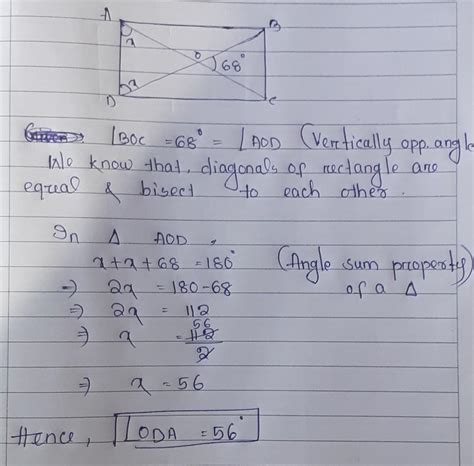 A B
x
O
68°
x
D C
∠BOC = 68° = ∠AOD (Vertically opp. angle
We know that, diagonals of rectangle are
equal & bisect to each other.
In Δ AOD,
x + x + 68 = 180° (Angle sum property
⇒ 2x = 180 - 68 of a Δ)
⇒ 2x = 112
56
⇒ x = 112/2
⇒ x = 56
Hence, ∠ODA = 56°